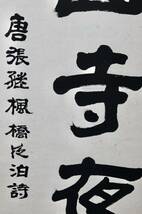 山寺夜
唐張継楓橋夜泊詩